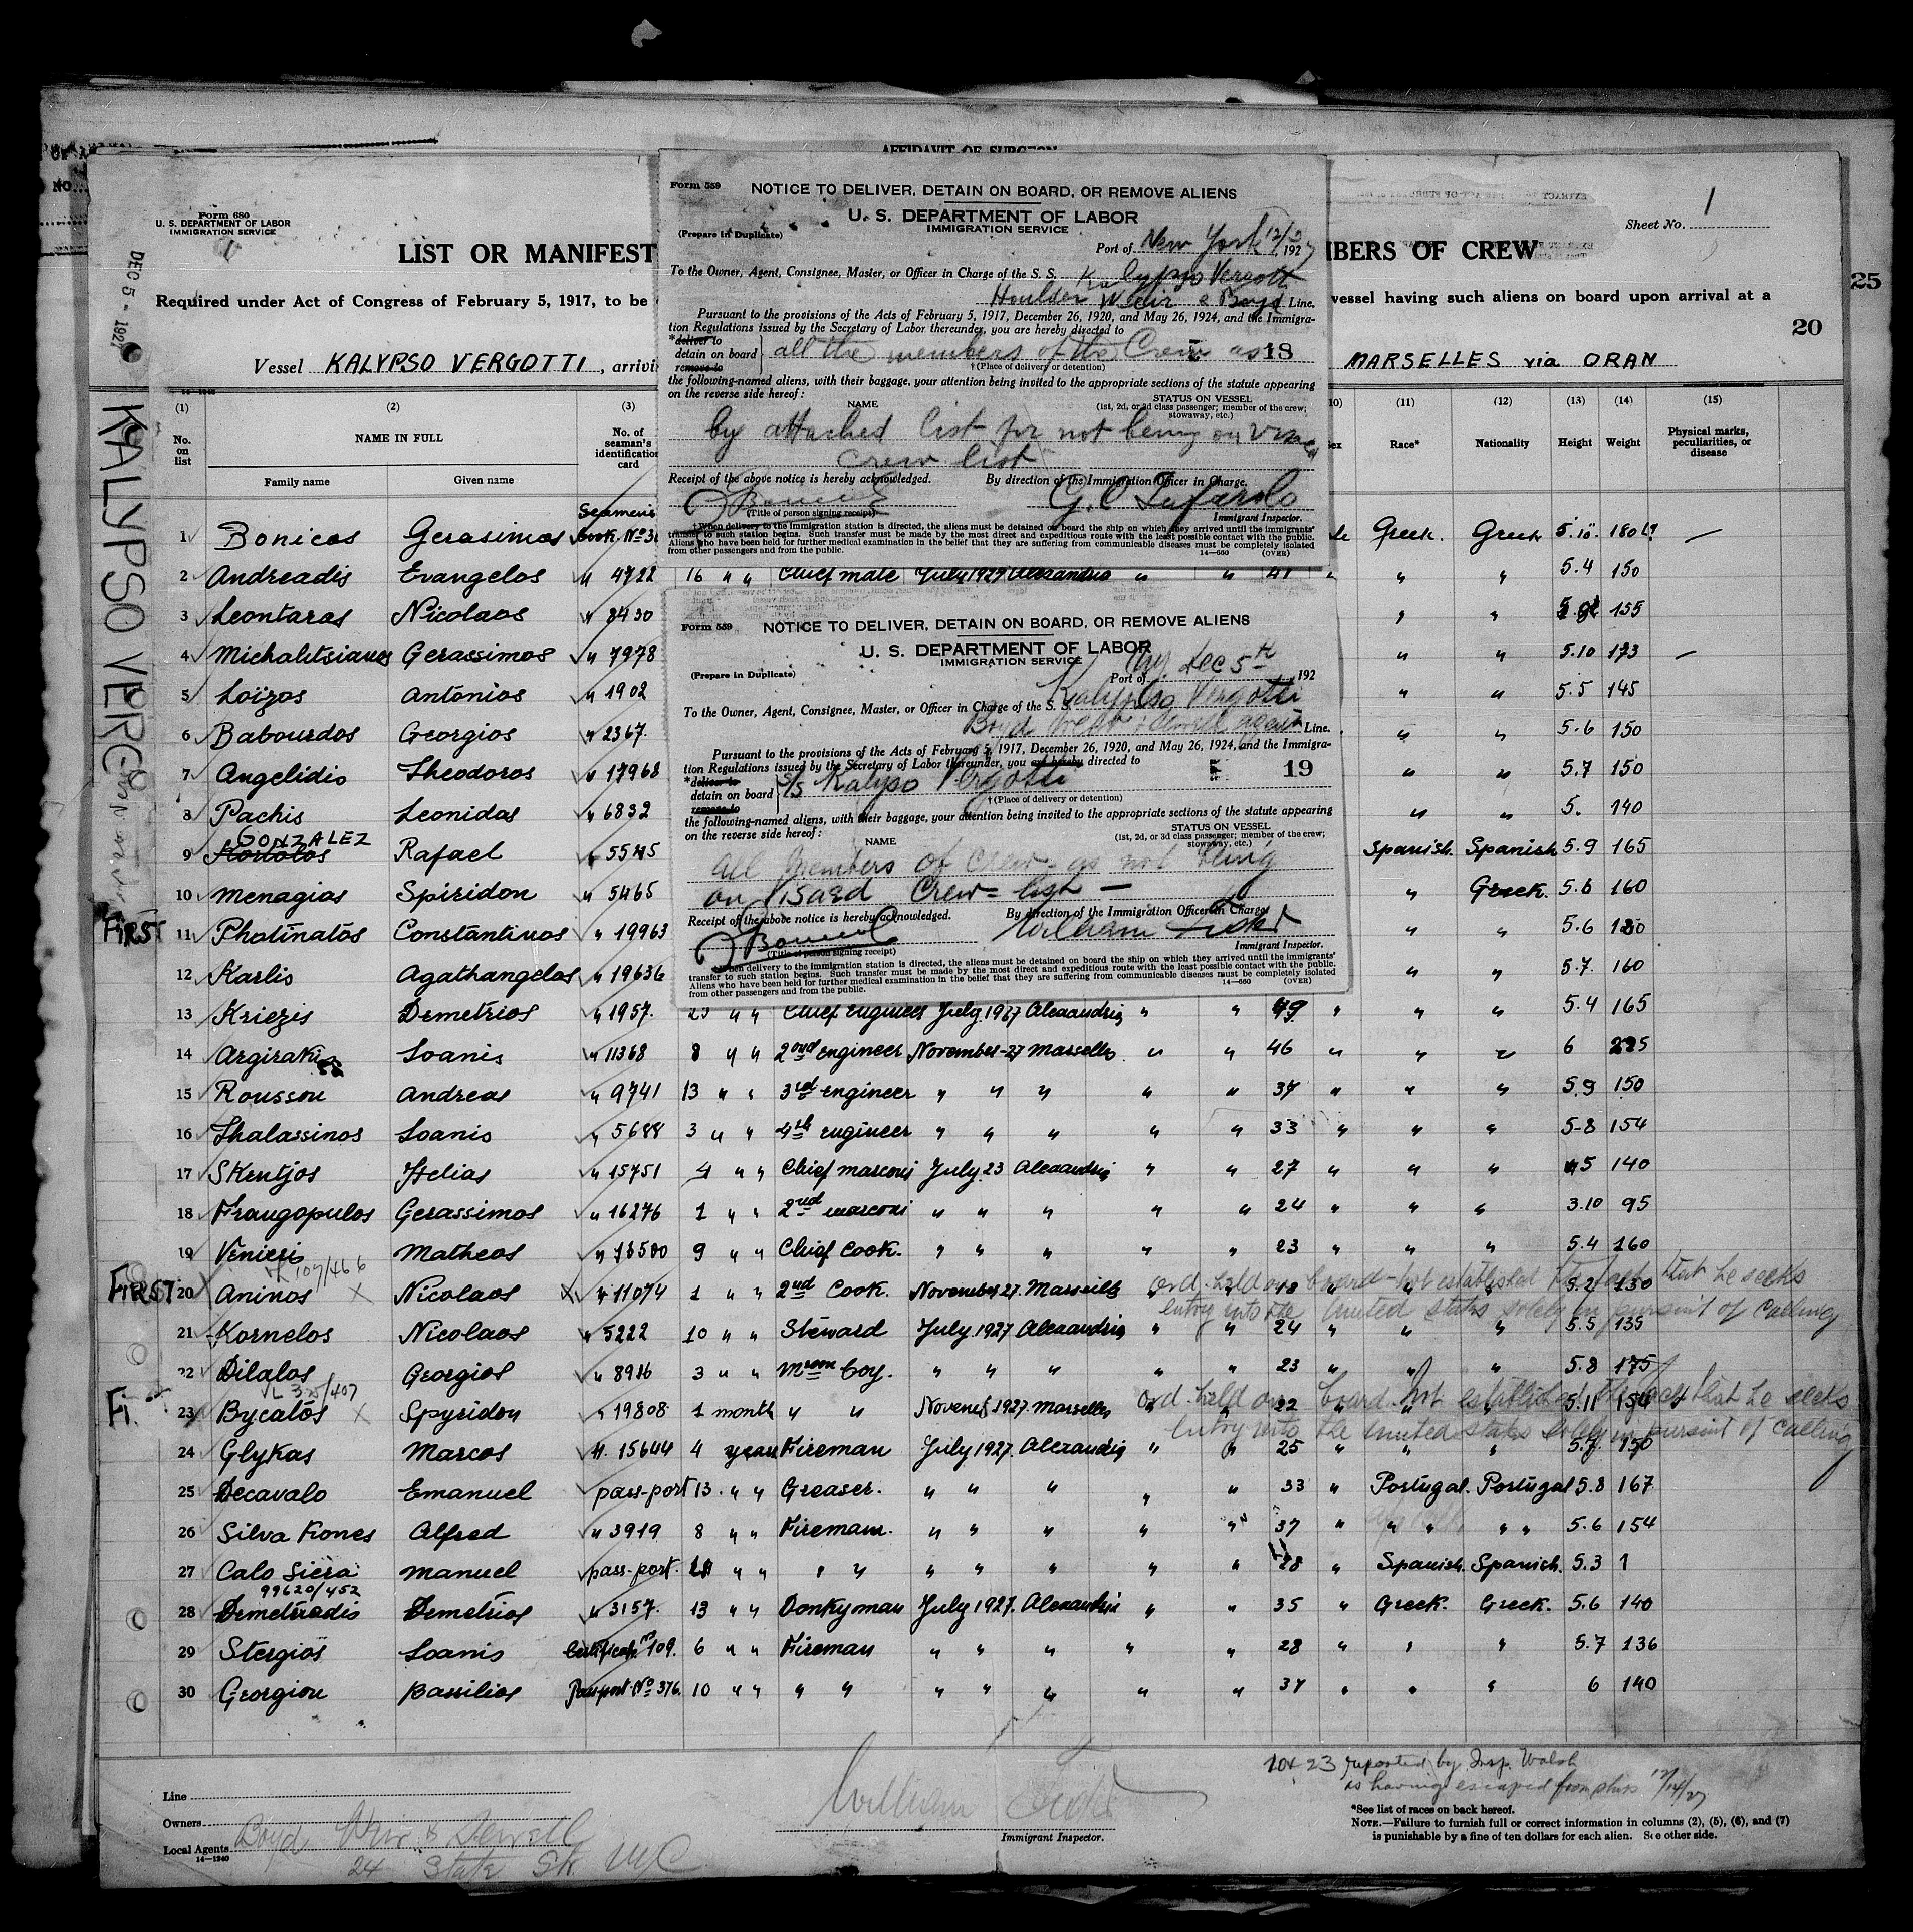 AFFIDAVIT OF SURGEON
Form 680
U. S. DEPARTMENT OF LABOR
IMMIGRATION SERVICE
DEC 5 - 1927
LIST OR MANIFEST
MBERS OF CREW
Sheet No. 1
Required under Act of Congress of February 5, 1917, to be
vessel having such aliens on board upon arrival at a
25
20
Vessel KALYPSO VERGOTTI, arrivi
MARSELLES via ORAN
KALYPSO VERG
Form 559
NOTICE TO DELIVER, DETAIN ON BOARD, OR REMOVE ALIENS
U. S. DEPARTMENT OF LABOR
IMMIGRATION SERVICE
(Prepare in Duplicate)
Port of New York 12/5 1927
To the Owner, Agent, Consignee, Master, or Officer in Charge of the S. S. Kalypso Vergotti
Houlder Weir & Boyd Line.
Pursuant to the provisions of the Acts of February 5, 1917, December 26, 1920, and May 26, 1924, and the Immigra-
tion Regulations issued by the Secretary of Labor thereunder, you are hereby directed to
*deliver to
detain on board
remove to
all the members of the Crew as 18
†(Place of delivery or detention)
the following-named aliens, with their baggage, your attention being invited to the appropriate sections of the statute appearing
on the reverse side hereof:
NAME
STATUS ON VESSEL
(1st, 2d, or 3d class passenger; member of the crew;
stowaway, etc.)
by attached list for not being on visaed
crew list
Receipt of the above notice is hereby acknowledged.
By direction of the Immigration Officer in Charge.
(Title of person signing receipt)
Immigrant Inspector.
†When delivery to the immigration station is directed, the aliens must be detained on board the ship on which they arrived until the immigrants'
transfer to such station begins. Such transfer must be made by the most direct and expeditious route with the least possible contact with the public.
Aliens who have been held for further medical examination in the belief that they are suffering from communicable diseases must be completely isolated
from other passengers and from the public.
14—660 (OVER)
Form 559
NOTICE TO DELIVER, DETAIN ON BOARD, OR REMOVE ALIENS
U. S. DEPARTMENT OF LABOR
IMMIGRATION SERVICE
(Prepare in Duplicate)
Port of NY Dec 5th 192
To the Owner, Agent, Consignee, Master, or Officer in Charge of the S. S. Kalypso Vergotti
Boyd Weir & Sewell agents Line.
Pursuant to the provisions of the Acts of February 5, 1917, December 26, 1920, and May 26, 1924, and the Immigra-
tion Regulations issued by the Secretary of Labor thereunder, you are hereby directed to
*deliver to
detain on board
remove to
S/S Kalypso Vergotti
19
†(Place of delivery or detention)
the following-named aliens, with their baggage, your attention being invited to the appropriate sections of the statute appearing
on the reverse side hereof:
NAME
STATUS ON VESSEL
(1st, 2d, or 3d class passenger; member of the crew;
stowaway, etc.)
all members of crew - as not being
on visaed Crew = list —
Receipt of the above notice is hereby acknowledged.
By direction of the Immigration Officer in Charge.
(Title of person signing receipt)
Immigrant Inspector.
When delivery to the immigration station is directed, the aliens must be detained on board the ship on which they arrived until the immigrants'
transfer to such station begins. Such transfer must be made by the most direct and expeditious route with the least possible contact with the public.
Aliens who have been held for further medical examination in the belief that they are suffering from communicable diseases must be completely isolated
from other passengers and from the public.
14—660 (OVER)
(1) (2) (3) (11) (12) (13) (14) (15)
No. on list
NAME IN FULL
Family name Given name
No. of seaman's identification card
Race* Nationality Height Weight Physical marks, peculiarities, or disease
1 Bonicos Gerasimos Seamen's book. No Greek. Greek 5.10 180 —
2 Andreadis Evangelos " 4722 16 " " Chief mate July 1927 Alexandria " " 41 " " " 5.4 150
3 Leontaras Nicolaos " 8430 " " 155
4 Michalitsianos Gerassimos " 7978 " " 5.10 173 —
5 Loizos Antonios " 1902 " " 5.5 145
6 Babourdos Georgios " 2367. " " 5.6 150
7 Angelidis Theodoros " 17968 " " 5.7 150
8 Pachis Leonidas " 6832 " " 5. 140
GONZALEZ
9 Rafael " 5545 Spanish. Spanish 5.9 165
10 Menagias Spiridon " 5465 " Greek. 5.6 160
FIRST 11 Photinatos Constantinos " 19963 " " 5.6 180
12 Karlis Agathangelos " 19636 " " 5.7. 160
13 Kriezis Demetrios " 1957. 25 " " Chief engineer July 1927 Alexandria " " 49 " " " 5.4 165
14 Argirakis Ioanis " 11368 8 " " 2nd engineer November-27 Marselles " " 46 " " " 6 225
15 Roussou Andreas " 9741 13 " " 3rd engineer " " " " " 37 " " " 5.9 150
16 Thalassinos Ioanis " 5688 3 " " 4th engineer " " " " " 33 " " " 5-8 154
17 Skentjos Helias " 15751 4 " " Chief marconi July 23 Alexandria " " 27 " " " 5 140
18 Frangopulos Gerassimos " 16276 1 " " 2nd marconi " " " " " 24 " " " 3.10 95
19 Venieri Matheos " 18500 9 " " Chief Cook. " " " " " 23 " " " 5.4 160
107/466
FIRST 20 Aninos Nicolaos " 11074 1 " " 2nd Cook. November 27. Marseille 18 5.2 130
Ord. held on board - not established the fact that he seeks
entry into the United States solely in pursuit of calling
21 Kornelos Nicolaos " 5222 10 " " Steward July 1927 Alexandria " " 24 " " " 5.5 135
22 Dilalos Georgios " 8916 3 " " Mroom boy. " " " " " 23 " " " 5.8 175
L 325/407
23 Bycatos Spyridon " 19808 1 month " " November 1927 Marselles 22 5.11 154
Ord. held on board. not established the fact that he seeks
entry into the United States solely in pursuit of calling
24 Glykas Marcos " 15644 4 years Fireman July 1927. Alexandria " " 25 " " " 5.7. 150
25 Decavalo Emanuel pass-port 13. " " Greaser. " " " " " 33 " Portugal. Portugal 5.8 167
26 Silva Fiones Alfred " 3919 8 " " Fireman. " " " " " 37 " " " " " 5.6 154
27 Calo Siera Manuel pass-port. " " " " " " " " " 28 " Spanish. Spanish. 5.3 1
99620/452
28 Demetriadis Demetrios " 3157. 13 " " Donkyman July 1927. Alexandria " " 35 " Greek. Greek. 5.6 140
29 Stergios Ioanis Certificate No 109. 6 " " Fireman " " " " " 28 " " " 5.7 136
30 Georgiou Bassilios Passport No 376. 10 " " " " " " " " " 37 " " " 6 140
Line
Owners
Local Agents Boyd Weir & Sewell
24 State St. NYC
14—1240
Immigrant Inspector.
20 & 23 reported by Insp. Walsh
as having escaped from ship 12/14/27
*See list of races on back hereof.
NOTE.—Failure to furnish full or correct information in columns (2), (5), (6), and (7)
is punishable by a fine of ten dollars for each alien. See other side.